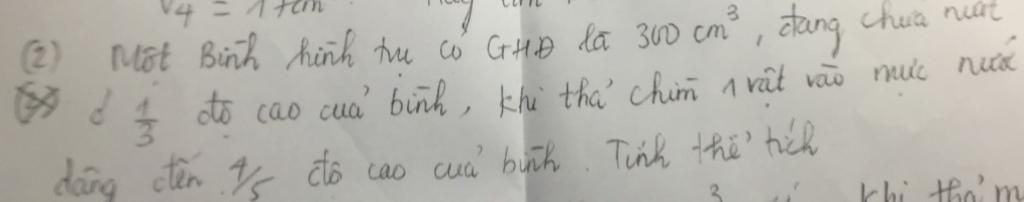 V4 = 17cm
(2) Một Bình hình trụ có GHĐ là 300 cm³, đang chưa nước
ở 1/3 độ cao của bình, khi thả chìm 1 vật vào mực nước
dâng đến 4/5 độ cao của bình. Tính thể tích
3 khi thả m